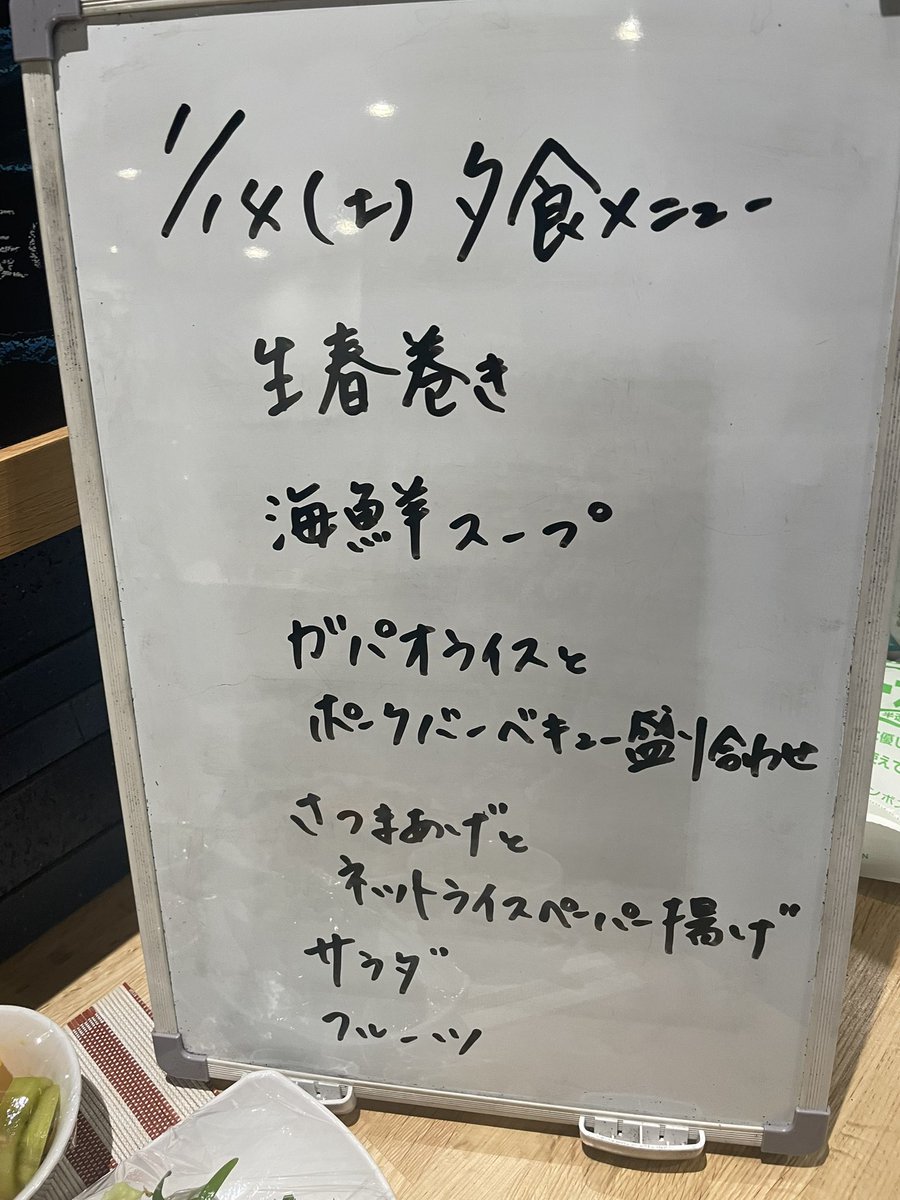 1/14(土) 夕食メニュー
生春巻き
海鮮スープ
ガパオライスと
ポークバーベキュー盛り合わせ
さつまあげと
ネットライスペーパー揚げ
サラダ
フルーツ